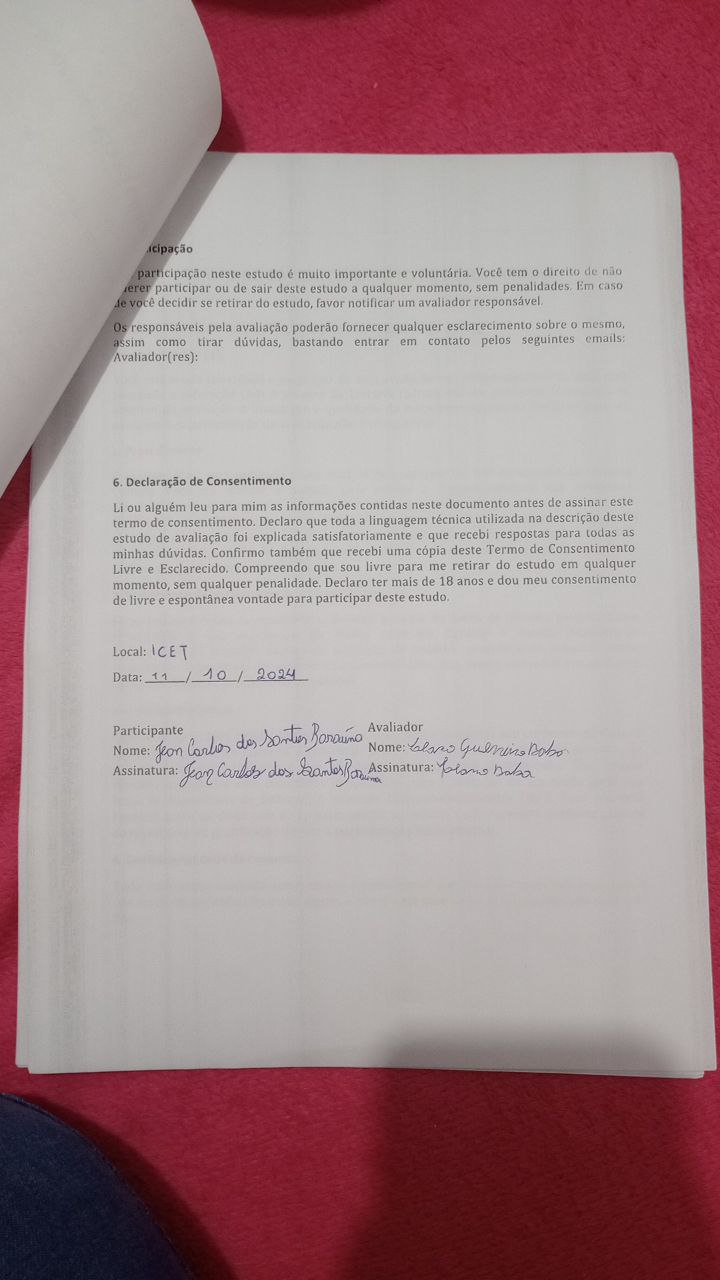 icipação
participação neste estudo é muito importante e voluntária. Você tem o direito de não
erer participar ou de sair deste estudo a qualquer momento, sem penalidades. Em caso
de você decidir se retirar do estudo, favor notificar um avaliador responsável.
Os responsáveis pela avaliação poderão fornecer qualquer esclarecimento sobre o mesmo,
assim como tirar dúvidas, bastando entrar em contato pelos seguintes emails:
Avaliador(res):
6. Declaração de Consentimento
Li ou alguém leu para mim as informações contidas neste documento antes de assinar este
termo de consentimento. Declaro que toda a linguagem técnica utilizada na descrição deste
estudo de avaliação foi explicada satisfatoriamente e que recebi respostas para todas as
minhas dúvidas. Confirmo também que recebi uma cópia deste Termo de Consentimento
Livre e Esclarecido. Compreendo que sou livre para me retirar do estudo em qualquer
momento, sem qualquer penalidade. Declaro ter mais de 18 anos e dou meu consentimento
de livre e espontânea vontade para participar deste estudo.
Local: ICET
Data: 11 / 10 / 2024
Participante
Nome: Jean Carlos dos Santos Baraúna
Assinatura: Jean Carlos dos Santos Baraúna
Avaliador
Nome:
Assinatura: